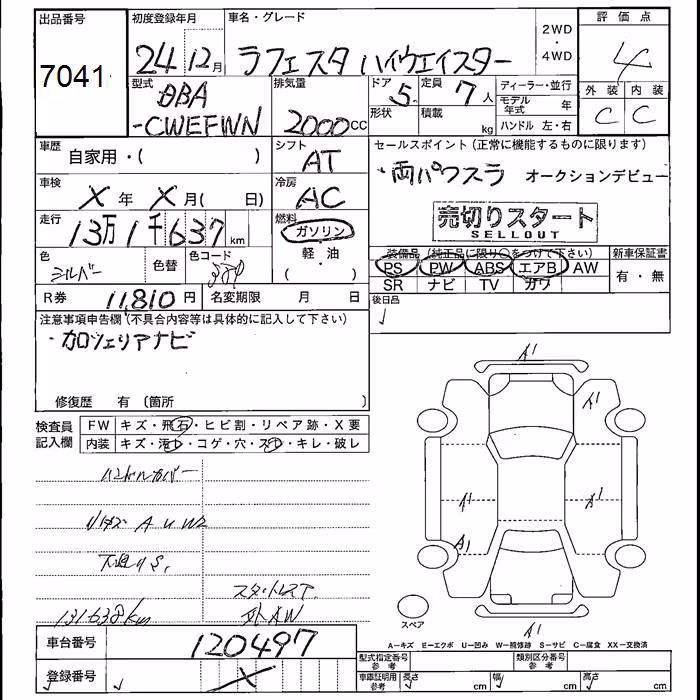 出品番号 初度登録年月 車名・グレード 2WD・4WD 評価点
7041 24年12月 ラフェスタ ハイウェイスター 4
型式 排気量 ドア 定員 ディーラー・並行 外装 内装
DBA 5 7人 モデル年式 年 C C
-CWEFWN 2000cc 形状 積載 kg ハンドル 左・右
車歴 自家用・( ) シフト AT セールスポイント(正常に機能するものに限ります)
・両パワスラ オークションデビュー
車検 X年 X月( 日) 冷房 AC
売切りスタート
SELLOUT
走行 13万1千637km 燃料 ガソリン
軽・油
( )
装備品(純正品に限り○をつけて下さい) 新車保証書
PS PW ABS エアB AW 有・無
SR ナビ TV カワ
色 シルバー 色替 色コード
後日品
R券 11,810円 名変期限 月 日
注意事項申告欄(不具合内容等は具体的に記入して下さい)
・カロッツェリアナビ
修復歴 有 (箇所 )
検査員記入欄 FW キズ・飛石・ヒビ割・リペア跡・X要
内装 キズ・汚れ・コゲ・穴・スレ・キレ・破レ
ハンドルカバー
A U W2
下廻りS,
スタットレスT
131.638km 外AW
A1
A1
A1 A1
A1
A1
スペア
A=キズ E=エクボ U=凹み W=補修跡 S=サビ C=腐食 XX=交換済
車台番号 120497
登録番号 X
型式指定番号参考 類別区分番号参考
車庫証明用参考 長さ cm 幅 cm 高さ cm